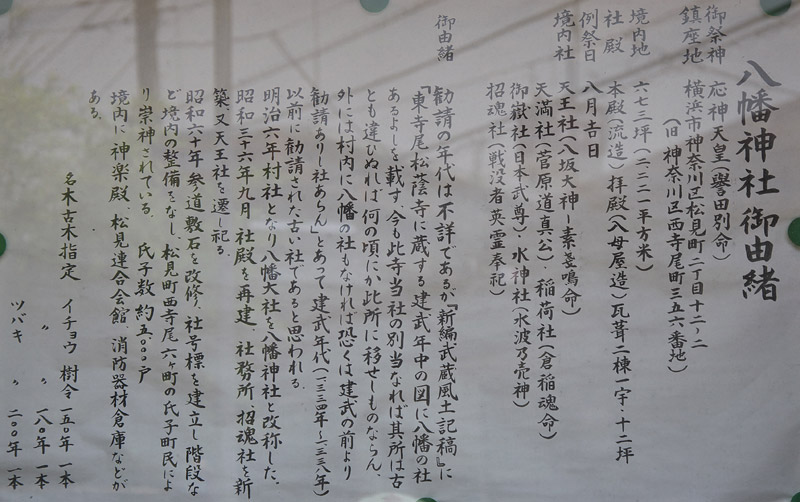 八幡神社御由緒
御祭神 応神天皇(譽田別命)
鎮座地 横浜市神奈川区松見町二丁目十二ノ二
(旧 神奈川区西寺尾町三五六番地)
境内地 六七三坪(二二二一平方米)
社殿 本殿(流造)拝殿(入母屋造)瓦葺二棟一宇・十二坪
例祭日 八月吉日
境内社 天王社(八坂大神ー素盞鳴命)
天満社(菅原道真公)・稲荷社(倉稲魂命)
御嶽社(日本武尊)・水神社(水波乃売神)
招魂社(戦没者英霊奉祀)
御由緒
勧請の年代は不詳であるが『新編武蔵風土記稿』に
「東寺尾松蔭寺に蔵する建武年中の図に八幡の社
あるよしを載す、今も此寺当社の別当なれば其所は古
とも違ひぬれば何の頃にか此所に移せしものならん、
外には村内に八幡の社もなければ恐くは建武の前より
勧請ありし社あらん」とあって建武年代(一三三四年〜一三三八年)
以前に勧請された古い社であると思われる。
明治六年村社となり八幡大社を八幡神社と改称した。
昭和三十六年九月 社殿を再建、社務所、招魂社を新
築、又天王社を遷し祀る。
昭和六十年参道敷石を改修、社号標を建立し階段な
ど境内の整備をなし、松見町西寺尾六ヶ町の氏子町民によ
り崇神されている。 氏子数 約五、〇〇〇戸
境内に神楽殿、松見連合会館、消防器材倉庫などが
ある。
名木古木指定 イチョウ 樹令 一五〇年 一本
〃 〃 一八〇年 一本
ツバキ 〃 二〇〇年 一本